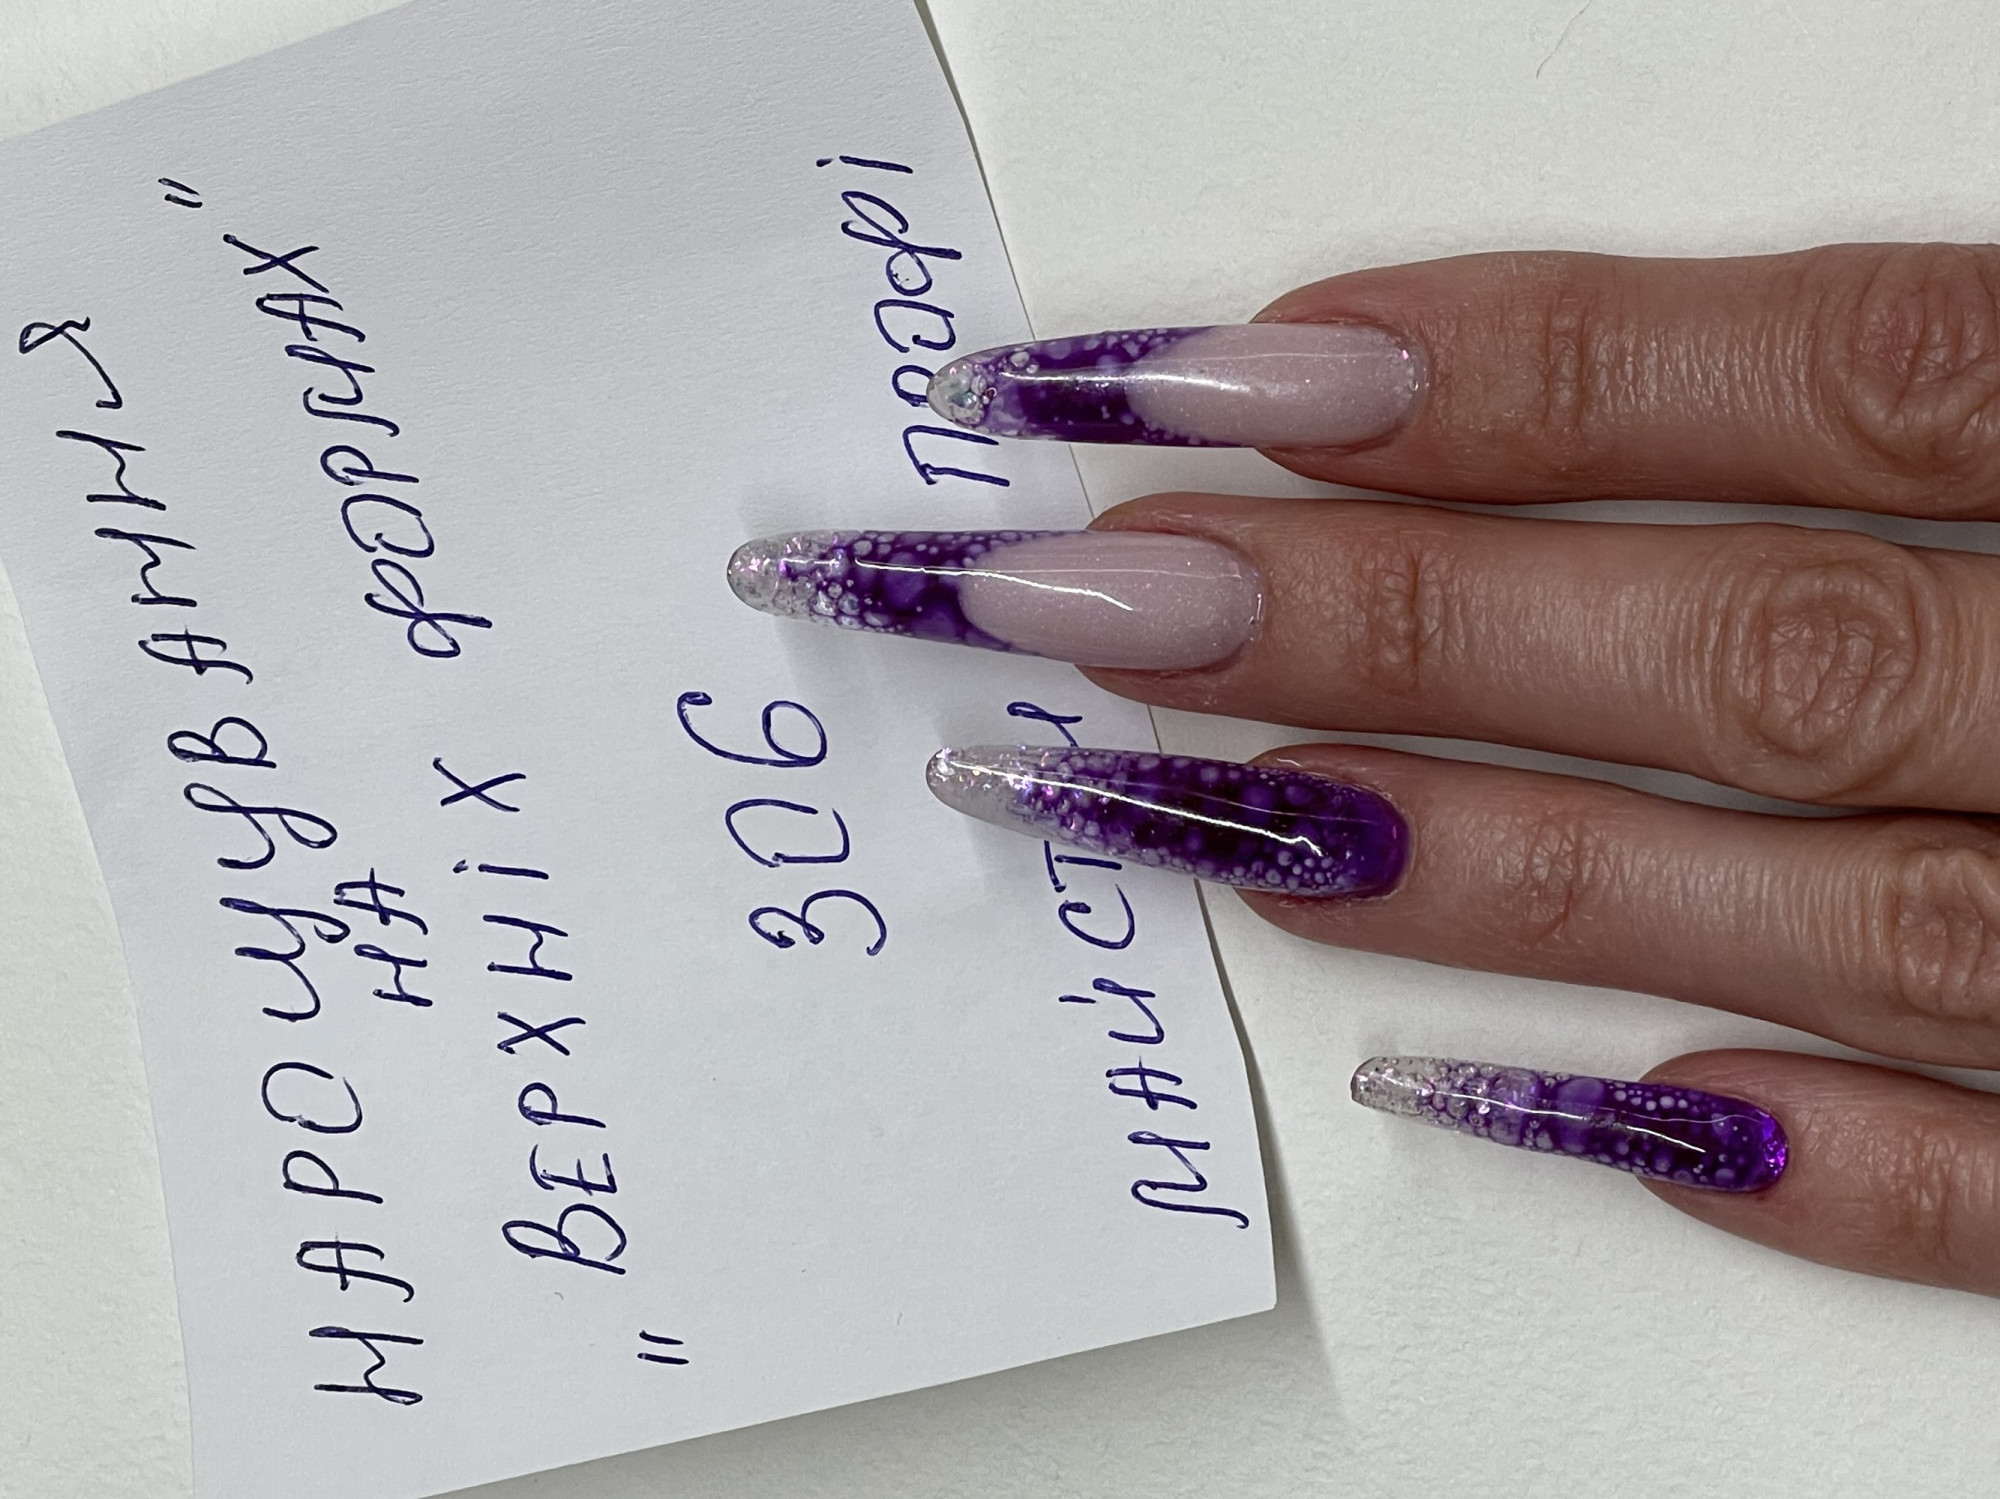 НАРОЩУВАННЯ
НА
"ВЕРХНІХ ФОРМАХ"
306
МАЙСТРИ ПРОФІ